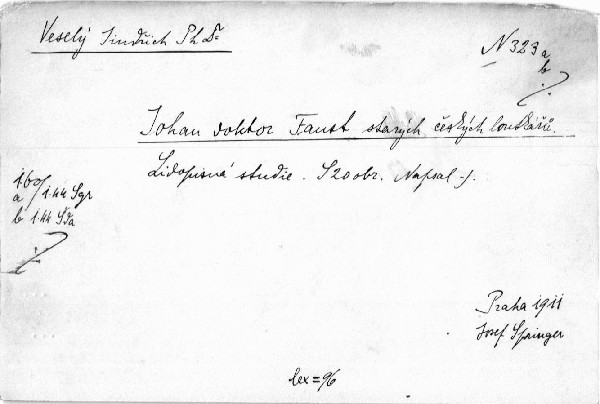 Veselý Jindřich PhDr
N 323 a
b
Johan doktor Faust starých českých loutkářů.
Lidopisná studie. S 20 obr. Napsal -/.
a 1.44 Sgr
b 1.44
Praha 1911
Josef Springer
lex = 96